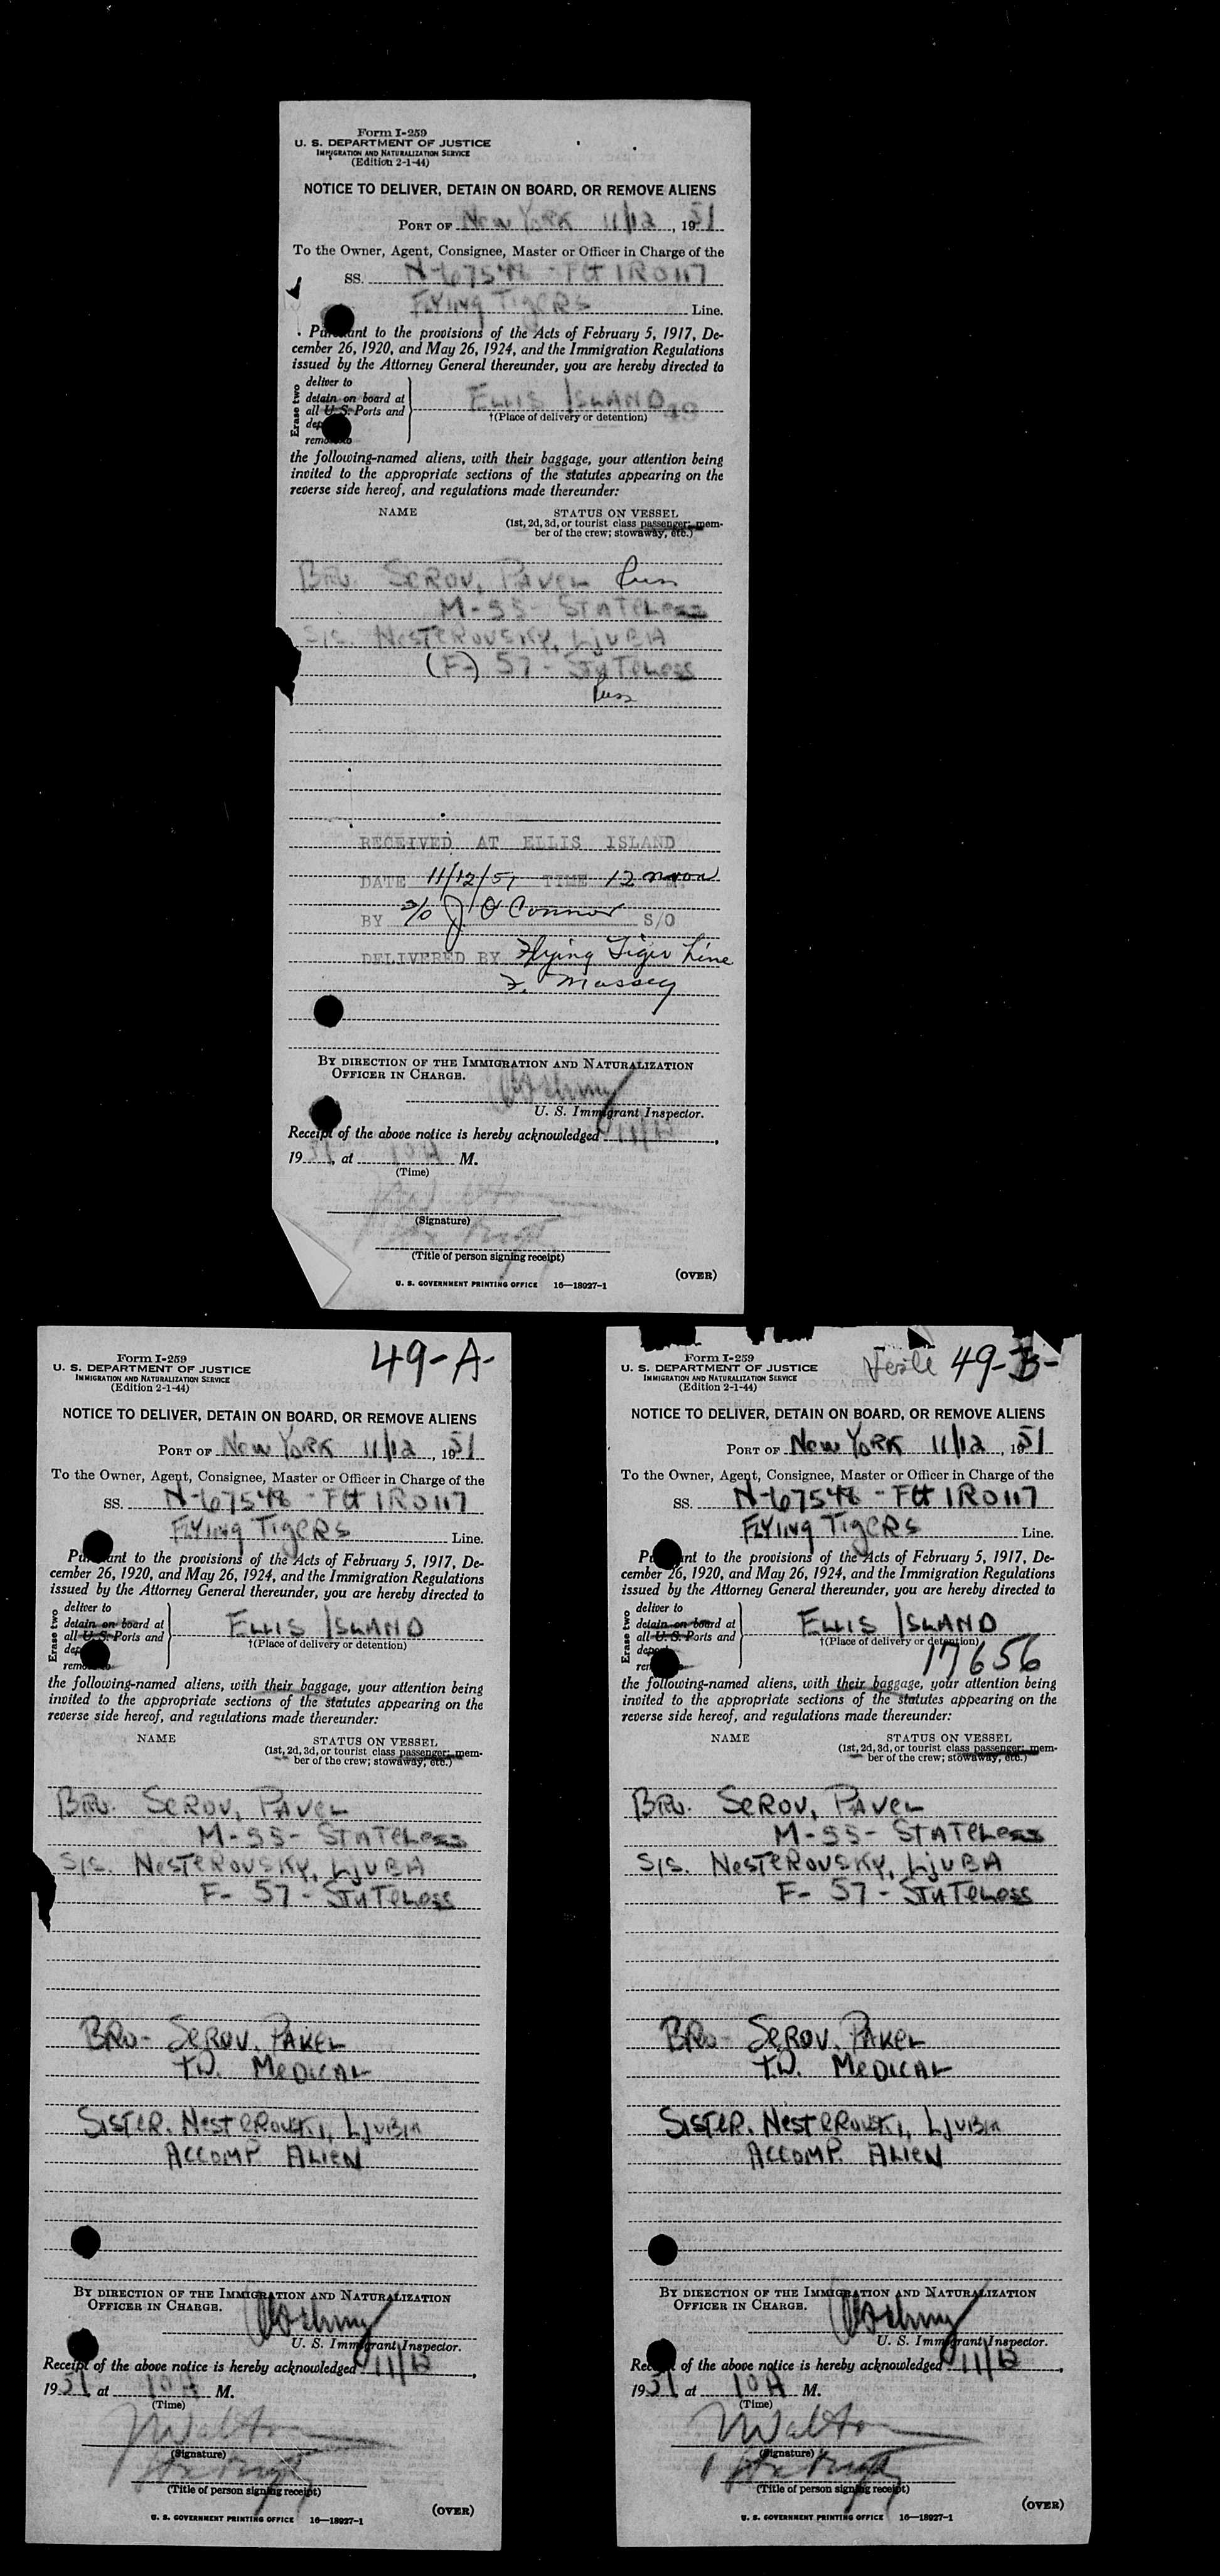 Form I-259
U. S. DEPARTMENT OF JUSTICE
IMMIGRATION AND NATURALIZATION SERVICE
(Edition 2-1-44)
NOTICE TO DELIVER, DETAIN ON BOARD, OR REMOVE ALIENS
PORT OF New York 11/12, 1951
To the Owner, Agent, Consignee, Master or Officer in Charge of the
SS. N-67548 - Flt IRO 117
Flying Tigers Line.
Pursuant to the provisions of the Acts of February 5, 1917, De-
cember 26, 1920, and May 26, 1924, and the Immigration Regulations
issued by the Attorney General thereunder, you are hereby directed to
Erase two
deliver to
detain on board at
all U. S. Ports and
remove to
ELLIS ISLAND
49
†(Place of delivery or detention)
the following-named aliens, with their baggage, your attention being
invited to the appropriate sections of the statutes appearing on the
reverse side hereof, and regulations made thereunder:
NAME STATUS ON VESSEL
(1st, 2d, 3d, or tourist class passenger; mem-
ber of the crew; stowaway, etc.)
Bro. SEROV, PAVEL Russ
M-55- STATELESS
Sis. NESTEROVSKY, LJUBA
(F-) 57 - STATELESS
Russ
RECEIVED AT ELLIS ISLAND
DATE 11/12/51 TIME 12 noon M.
BY S/O J. O'Connor S/O
DELIVERED BY Flying Tiger Line
Massey
BY DIRECTION OF THE IMMIGRATION AND NATURALIZATION
OFFICER IN CHARGE.
U. S. Immigrant Inspector.
Receipt of the above notice is hereby acknowledged 11/12,
1951, at 10 A M.
(Time)
(Signature)
(Title of person signing receipt)
U. S. GOVERNMENT PRINTING OFFICE 16—18927-1
(OVER)
49-A-
Form I-259
U. S. DEPARTMENT OF JUSTICE
IMMIGRATION AND NATURALIZATION SERVICE
(Edition 2-1-44)
NOTICE TO DELIVER, DETAIN ON BOARD, OR REMOVE ALIENS
PORT OF New York 11/12, 1951
To the Owner, Agent, Consignee, Master or Officer in Charge of the
SS. N-67548 - Flt IRO 117
Flying Tigers Line.
Pursuant to the provisions of the Acts of February 5, 1917, De-
cember 26, 1920, and May 26, 1924, and the Immigration Regulations
issued by the Attorney General thereunder, you are hereby directed to
Erase two
deliver to
detain on board at
all U. S. Ports and
remove to
ELLIS ISLAND
†(Place of delivery or detention)
the following-named aliens, with their baggage, your attention being
invited to the appropriate sections of the statutes appearing on the
reverse side hereof, and regulations made thereunder:
NAME STATUS ON VESSEL
(1st, 2d, 3d, or tourist class passenger; mem-
ber of the crew; stowaway, etc.)
Bro. SEROV, PAVEL
M-55- STATELESS
Sis. NESTEROVSKY, LJUBA
F- 57 - STATELESS
BRO- SEROV, PAKEL
T.D. MEDICAL
SISTER. NESTEROVSKI, LJUBIA
ACCOMP. ALIEN
BY DIRECTION OF THE IMMIGRATION AND NATURALIZATION
OFFICER IN CHARGE.
U. S. Immigrant Inspector.
Receipt of the above notice is hereby acknowledged 11/12,
1951 at 10 A M.
(Time)
J Walton
(Signature)
(Title of person signing receipt)
U. S. GOVERNMENT PRINTING OFFICE 16—18927-1
(OVER)
49-B-
Form I-259
U. S. DEPARTMENT OF JUSTICE
IMMIGRATION AND NATURALIZATION SERVICE
(Edition 2-1-44)
NOTICE TO DELIVER, DETAIN ON BOARD, OR REMOVE ALIENS
PORT OF New York 11/12, 1951
To the Owner, Agent, Consignee, Master or Officer in Charge of the
SS. N-67548 - Flt IRO 117
Flying Tigers Line.
Pursuant to the provisions of the Acts of February 5, 1917, De-
cember 26, 1920, and May 26, 1924, and the Immigration Regulations
issued by the Attorney General thereunder, you are hereby directed to
Erase two
deliver to
detain on board at
all U. S. Ports and
ELLIS ISLAND
†(Place of delivery or detention)
17656
the following-named aliens, with their baggage, your attention being
invited to the appropriate sections of the statutes appearing on the
reverse side hereof, and regulations made thereunder:
NAME STATUS ON VESSEL
(1st, 2d, 3d, or tourist class passenger; mem-
ber of the crew; stowaway, etc.)
Bro. SEROV, PAVEL
M-55- STATELESS
Sis. NESTEROVSKY, LJUBA
F- 57 - STATELESS
BRO- SEROV, PAKEL
T.D. MEDICAL
SISTER. NESTEROVSKI, LJUBIA
ACCOMP. ALIEN
BY DIRECTION OF THE IMMIGRATION AND NATURALIZATION
OFFICER IN CHARGE.
U. S. Immigrant Inspector.
Receipt of the above notice is hereby acknowledged 11/12,
1951 at 10 A M.
(Time)
J Walton
(Signature)
(Title of person signing receipt)
U. S. GOVERNMENT PRINTING OFFICE 16—18927-1
(OVER)